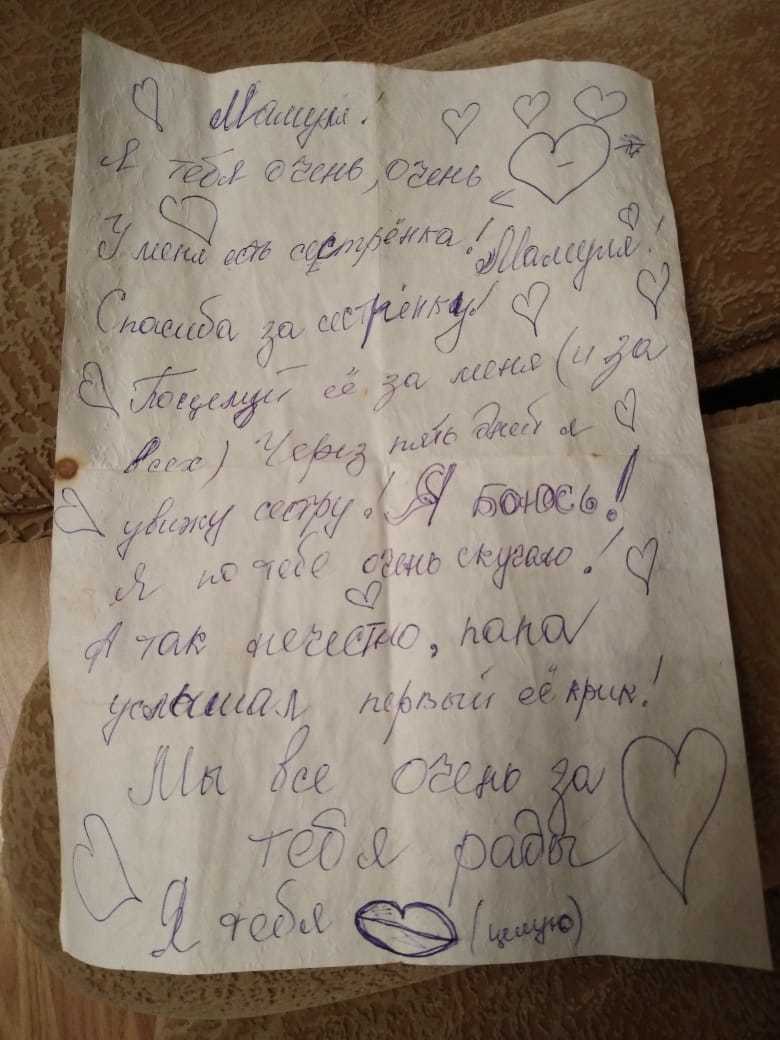 Мамуля!
Я тебя очень, очень
У меня есть сестрёнка! Мамуля!
Спасиба за сестрёнку!
Поцелуй её за меня (и за
всех) Через пять дней я
увижу сестру! Я боюсь!
Я по тебе очень скучаю!
А так нечестно, папа
услышал первый её крик!
Мы все очень за
тебя рады
Я тебя (целую)